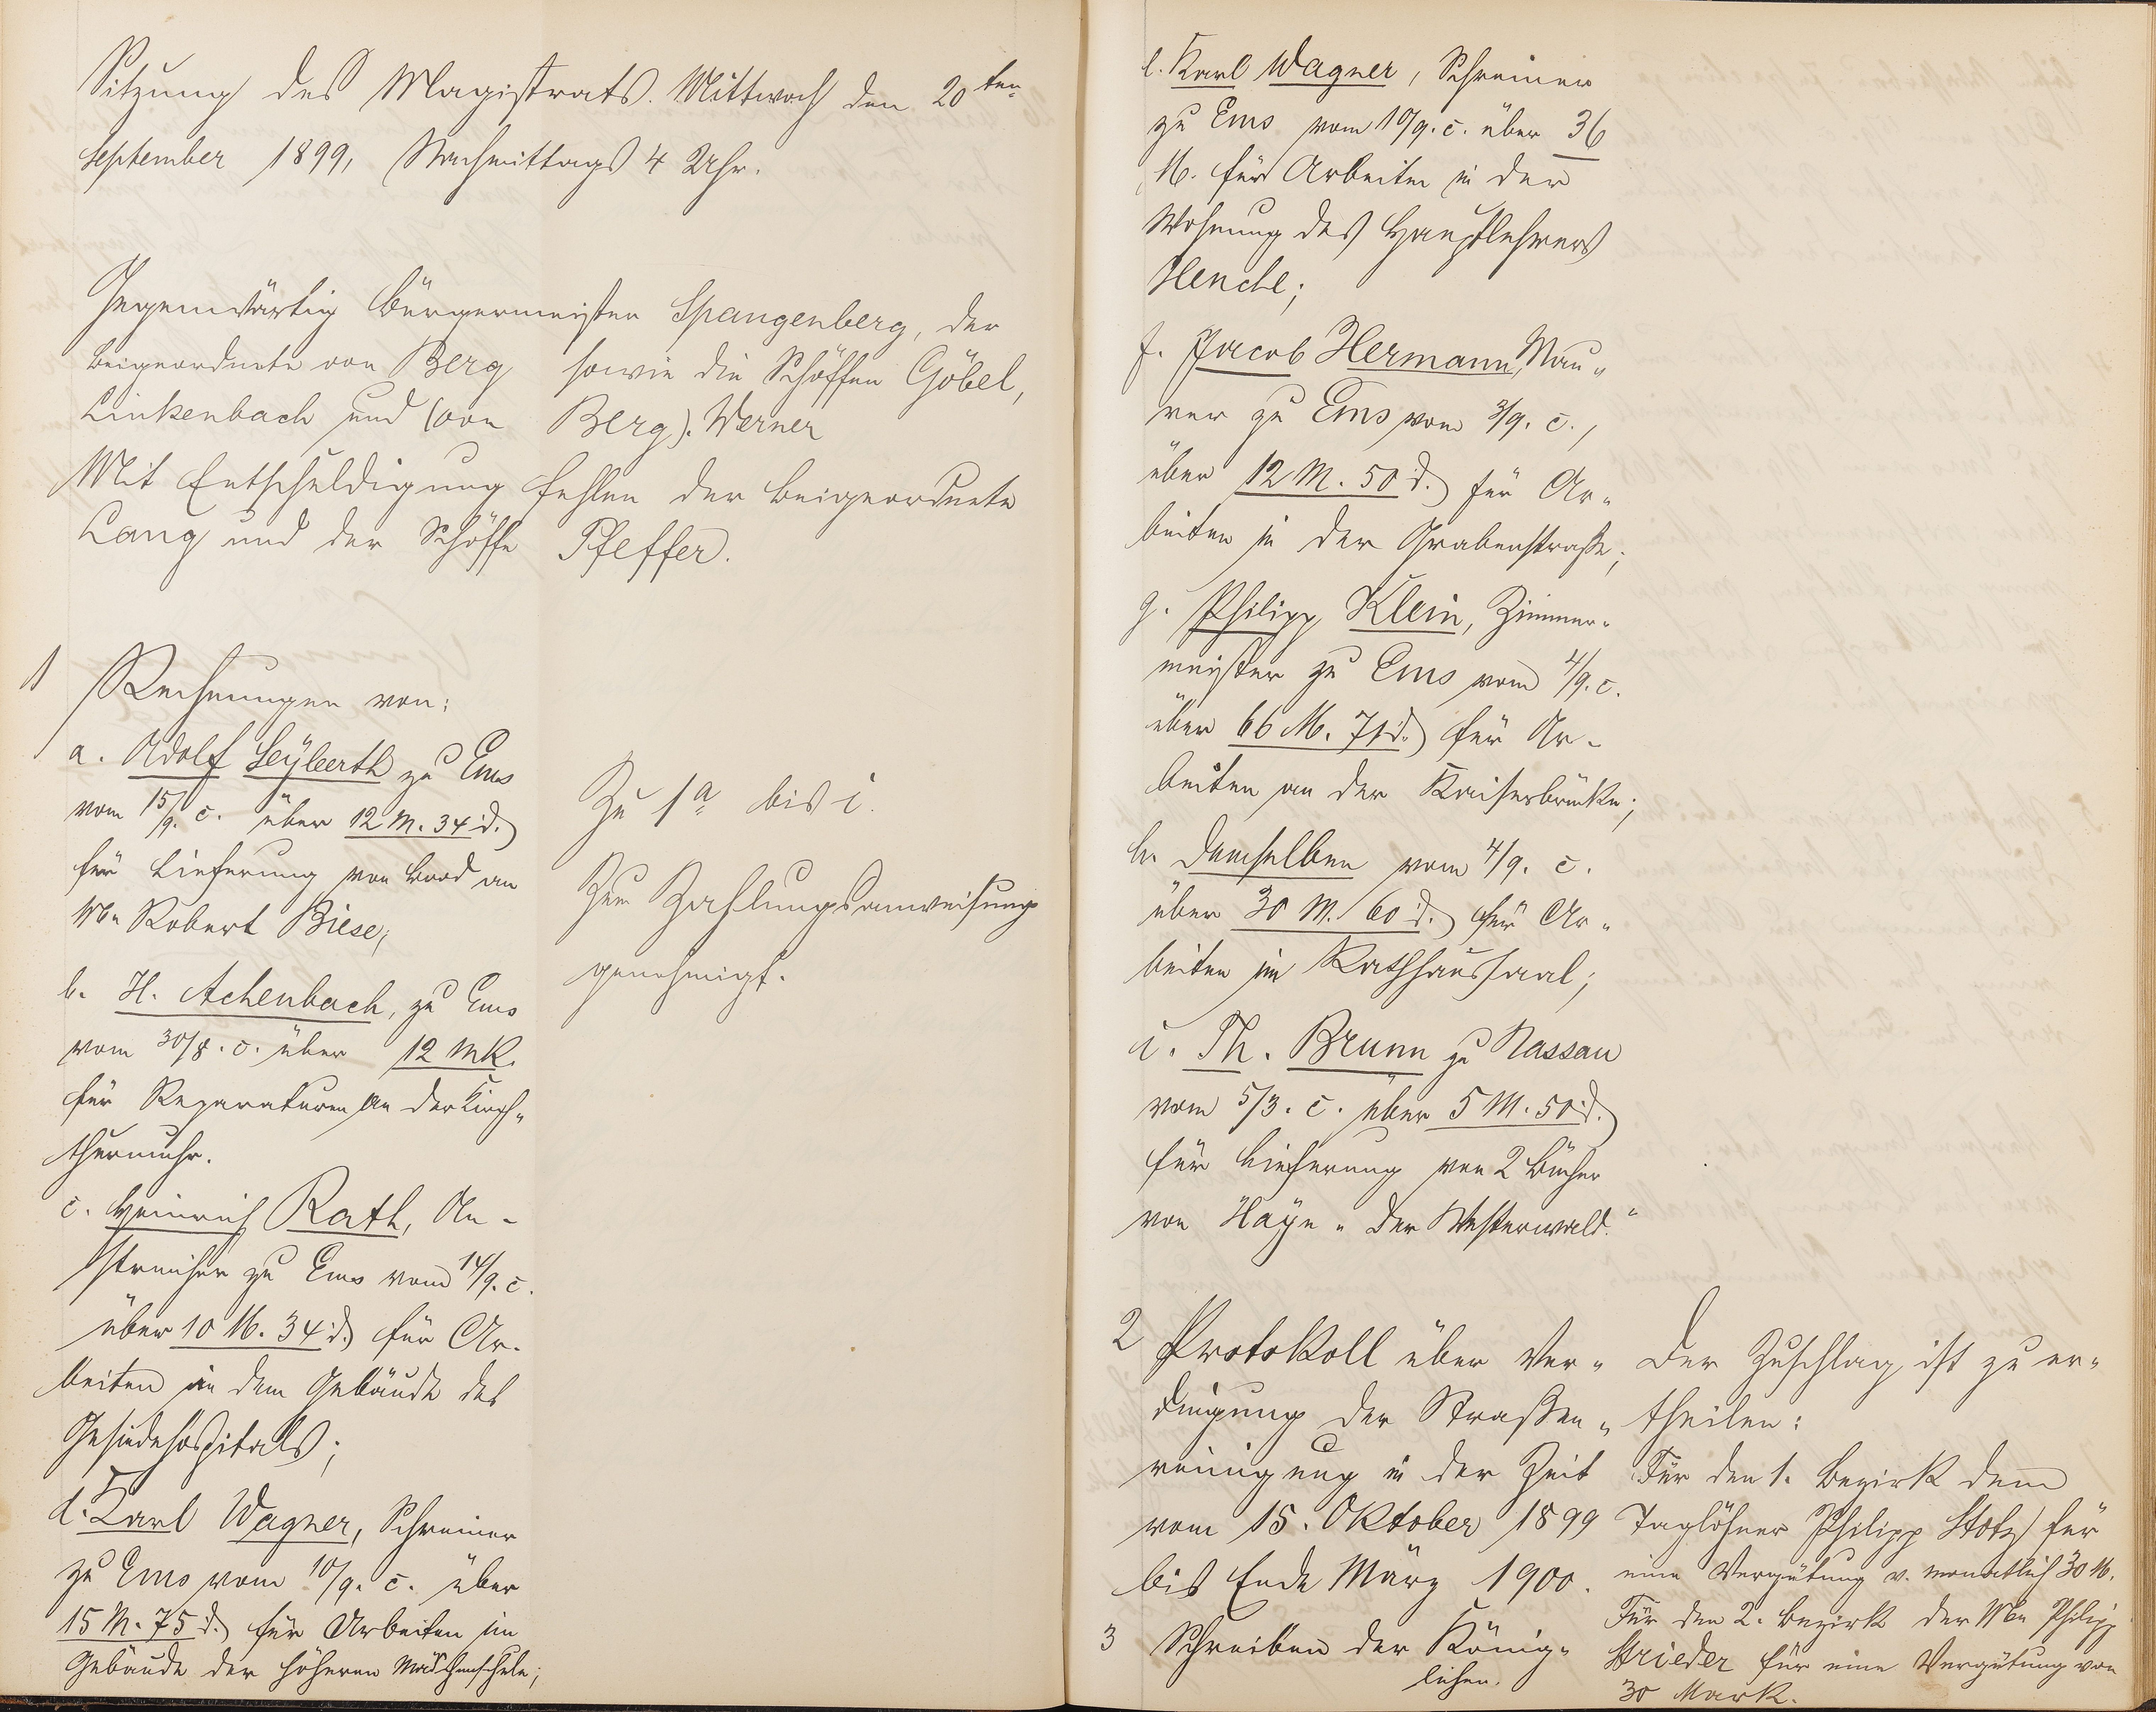 Sitzung des Magistrats. Mittwoch den 20ten
September 1899, Nachmittags 4 Uhr.
Gegenwärtig Bürgermeister Spangenberg, der
Beigeordnete von Berg sowie die Schöffen Göbel,
Linkenbach und (von Berg). Werner
Mit Entschuldigung fehlen der Beigeordnete
Lang und der Schöffe Pfeffer.
1 Rechnungen von:
a. Adolf Seyberth zu Ems
vom 15/9. c. über 12 M. 34 d.
für Lieferung von Brod an
Wn Robert Biese;
b. H. Achenbach, zu Ems
vom 30/8. c. über 12 Mk.
für Reparaturen an der Kirch„
thurmuhr.
c. Heinrich Rath, An-
streicher zu Ems vom 14/9. c.
über 10 M. 34 d. für Ar-
beiten in dem Gebäude des
Gesindehospitals;
d. Karl Wagner, Schreiner
zu Ems vom 10/9. c. über
15 M. 75 d. für Arbeiten im
Gebäude der höheren Mädchenschule;
Zu 1a bis i.
Zur Zahlungsanweisung
genehmigt.
e. Karl Wagner, Schreiner
zu Ems vom 10/9. c. über 36
M. für Arbeiten in der
Wohnung des Hauptlehrers
Henche;
f. Jacob Hermann, Mau„
rer zu Ems vom 3/9. c.,
über 12 M. 50 d. für Ar„
beiten in der Grabenstraße;
g. Philipp Klein, Zimmer-
meister zu Ems vom 4/9. c.
über 66 M. 71 d. für Ar-
beiten an der Kaiserbrücke;
h. Demselben vom 4/9. c.
über 30 M. 60 d. für Ar„
beiten im Rathhaussaal;
i. Th. Brunn zu Nassau
vom 5/3. c. über 5 M. 50 d.
für Lieferung von 2 Bücher
von Häyn „Der Westerwald."
2 Protokoll über Ver„
dingung der Straßen„
reinigung in der Zeit
vom 15. Oktober 1899
bis Ende März 1900.
3 Schreiben der König„
lichen.
Der Zuschlag ist zu er„
theilen:
Für den 1. Bezirk dem
Taglöhner Philipp Stotz für
eine Vergütung v. monatlich 30 M.
Für den 2. Bezirk der Wn Philipp
Strieder für eine Vergütung von
30 Mark.